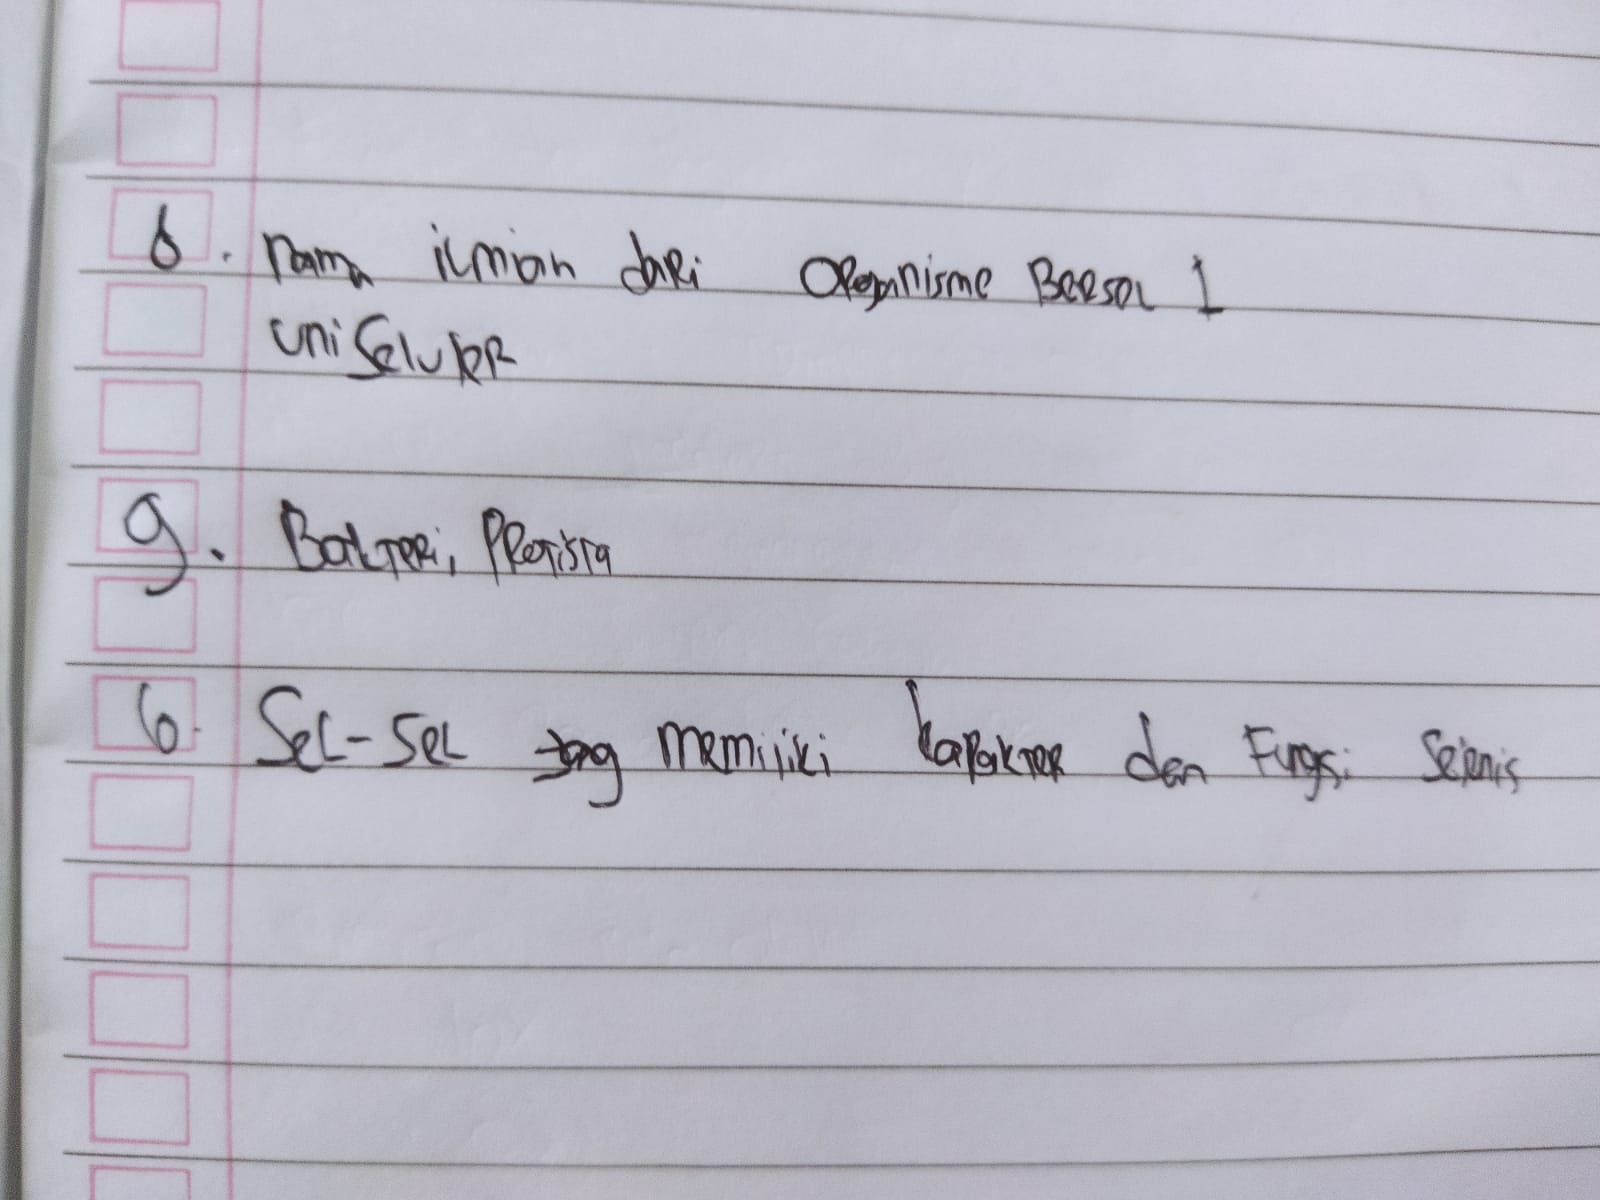 6. nama ilmiah dari Organisme Bersel 1
uniseluler
9. Bakteri, Protista
6. Sel-Sel yang memiliki karakter dan Fungsi Sejenis